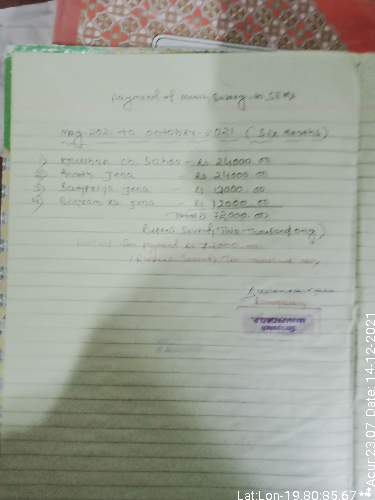 Payment of to SEMs
May-2021 to October-2021 (Six months)
1) Krushna ch. Sahoo - Rs 24000.00
2) Anath Jena - Rs 24000.00
3) Jena - Rs 12000.00
4) Ku Jena - Rs 12000.00
Total Rs 72,000.00
Rupees Seventy Two thousand only)
for payment Rs 72000.00
Seventy Two thousand only
Sarpanch
Lat:Lon-19.80:85.67**Acur:23.07 Date: 14-12-2021